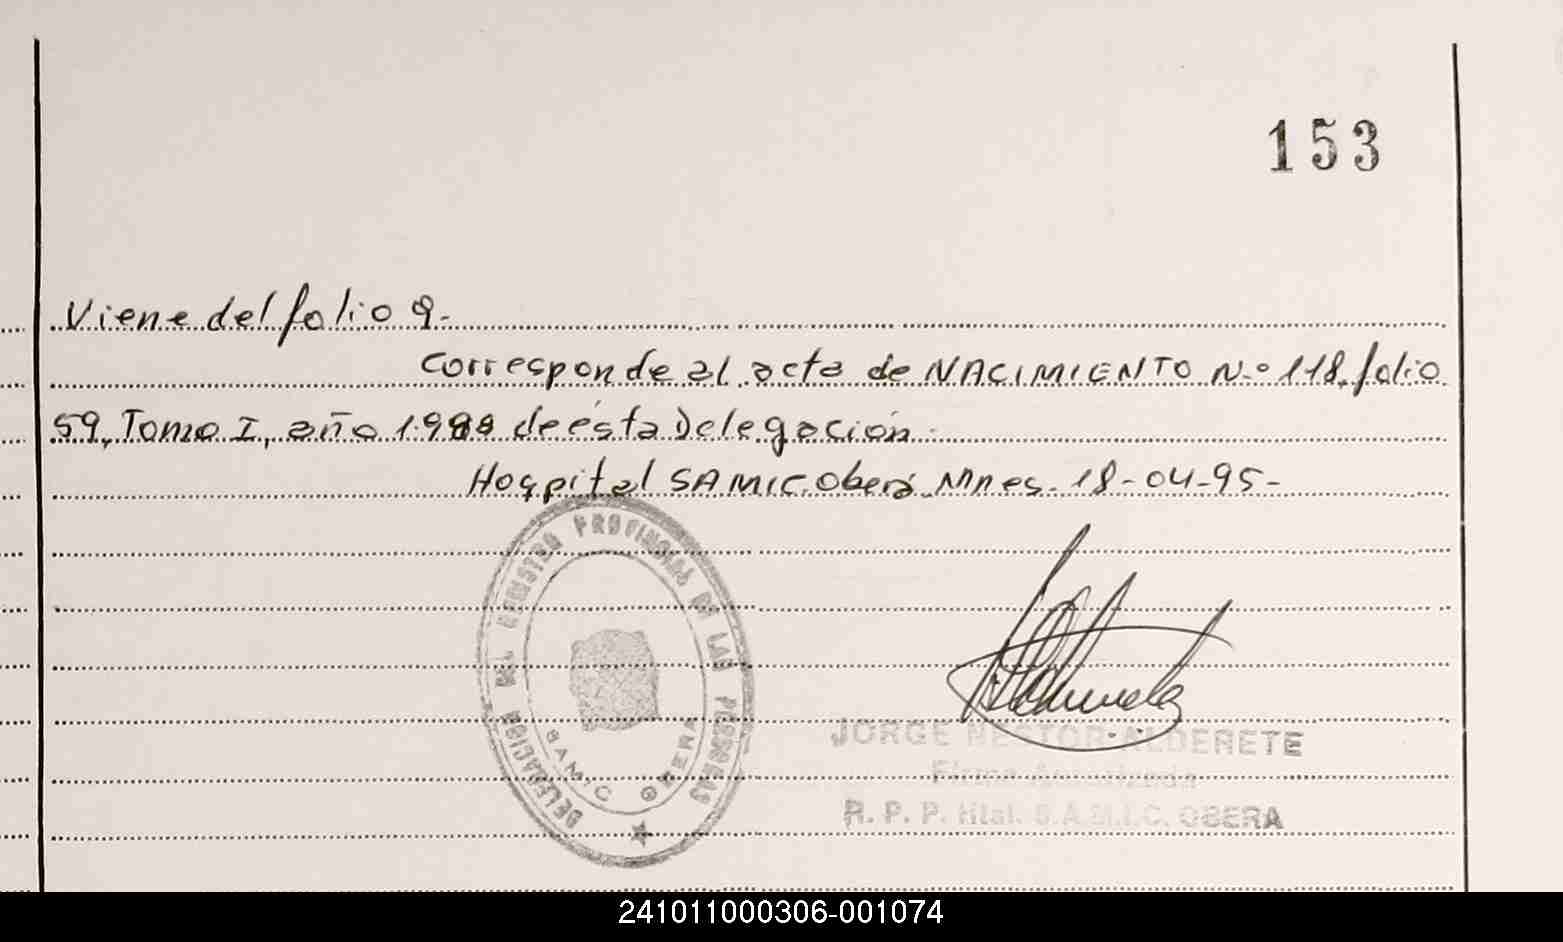 153
Viene del folio 9.-
Corresponde al acta de NACIMIENTO N.º 118, folio
59, Tomo I, año 1988 de ésta Delegación.
Hospital SAMIC. Oberá. Mnes. 18-04-95-
DELEGACION DEL REGISTRO PROVINCIAL DE LAS PERSONAS
SAMIC OBERA
JORGE NESTOR ALDERETE
Firma Autorizada
R. P. P. Htal. S.A.M.I.C. OBERA
241011000306-001074